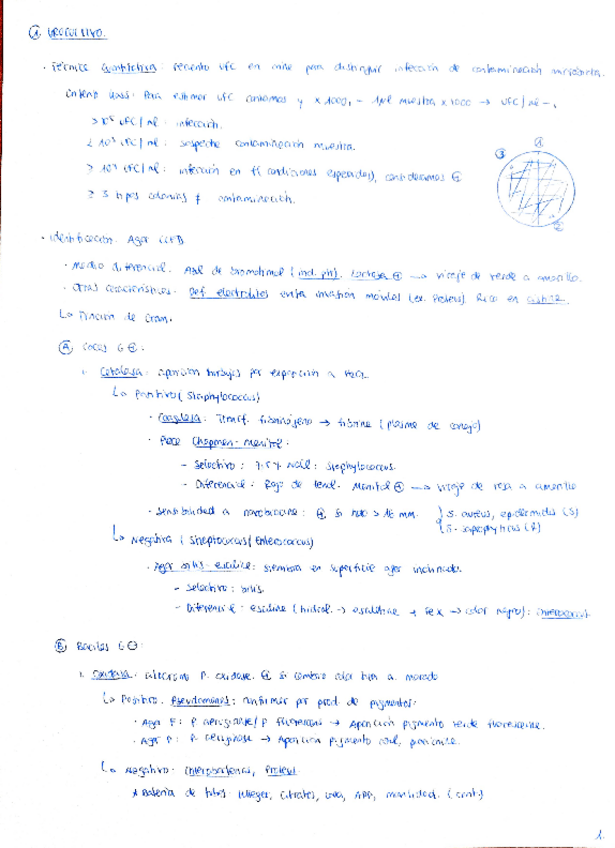 ① UROCULTIVO.
· Técnica cuantitativa: recuento ufc en orina para distinguir infección de contaminación
Criterio Kass: Para estimar ufc contamos y x 1000, - 1µl muestra x 1000 → ufc/ml -.
> 10⁵ ufc/ml: infección.
< 10³ ufc/ml: sospecha contaminación muestra.
> 10³ ufc/ml: infección en condiciones especiales, consideramos ⊕
≥ 3 tipos colonias ≠ contaminación.
① ② ③
· Identificación. Agar CLED
· Medio diferencial. Azul de bromotimol (ind. ph). Lactosa ⊕ → viraje de verde a amarillo.
· Otras características. Def. electrolitos evita invasión móviles (ex. Proteus). Rico en cistina.
↳ Tinción de Gram.
Ⓐ Cocos G⊕:
1. Catalasa: aparición burbujas por exposición a H2O2
↳ Positivo (Staphylococcus)
· Coagulasa: Transf. fibrinógeno → fibrina (plasma de conejo)
· Placa Chapman-manitol:
- Selectivo: 7.5% NaCl: Staphylococcus.
- Diferencial: Rojo de fenol. Manitol ⊕ → viraje de rosa a amarillo
· Sensibilidad a novobiocina: ⊕ si halo > 16 mm. S. aureus, epidermidis (S)
S. saprophyticus (R)
↳ Negativa (Streptococcus/Enterococcus)
· Agar bilis-esculina: siembra en superficie agar inclinado.
- Selectivo: bilis.
- Diferencial: esculina (hidrol. → esculetina + Fex → color negro): enterococcus
Ⓑ Bacilos G⊖:
1. Oxidasa: citocromo P. oxidasa. ⊕ si cambio color tira a morado
↳ Positivo. Pseudomonas: confirmar por prod. de pigmentos.
· Agar F: P. aeruginosa/P. fluorescens → Aparición pigmento verde fluorescente.
· Agar P: P. aeruginosa → Aparición pigmento azul, piocianina.
↳ Negativo. Enterobacterias, Proteus.
* Batería de tubos: Kligler, Citratos, urea, movilidad. (cont.)
1.